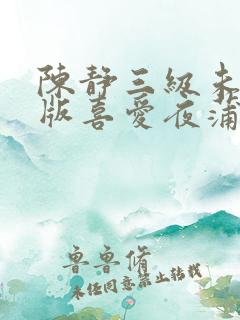 陳靜三級未
版喜愛夜蒲
魯魯脩
未经同意禁止转载